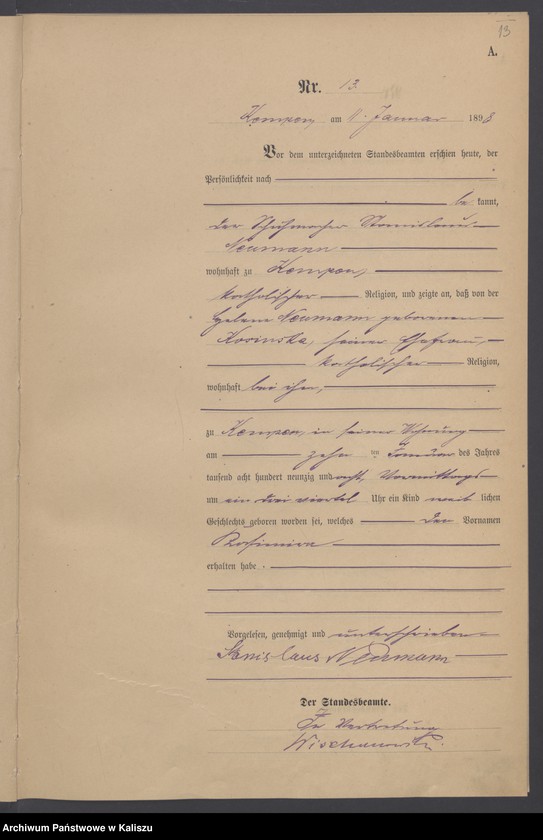 13
A.
Nr. 13.
Kempen am 11. Januar 1898
Vor dem unterzeichneten Standesbeamten erschien heute, der
Persönlichkeit nach
be kannt,
der Schuhmacher Stanislaus
Neumann
wohnhaft zu Kempen,
katholischer Religion, und zeigte an, daß von der
Helene Neumann geborenen
Kosinska, seiner Ehefrau,
katholischer Religion,
wohnhaft bei ihm,
zu Kempen, in seiner Wohnung
am zehn ten Januar des Jahres
tausend acht hundert neunzig und acht, Vormittags
um ein drei viertel Uhr ein Kind weib lichen
Geschlechts geboren worden sei, welches den Vornamen
erhalten habe.
Vorgelesen, genehmigt und unterschrieben
Stanislaus Neumann
Der Standesbeamte.
In Vertretung
Archiwum Państwowe w Kaliszu